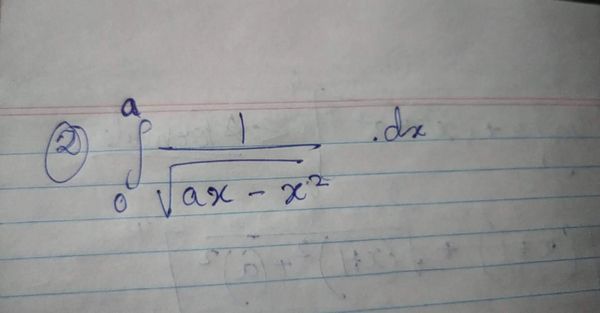 ② ∫₀ᵃ 1/√(ax - x²) .dx